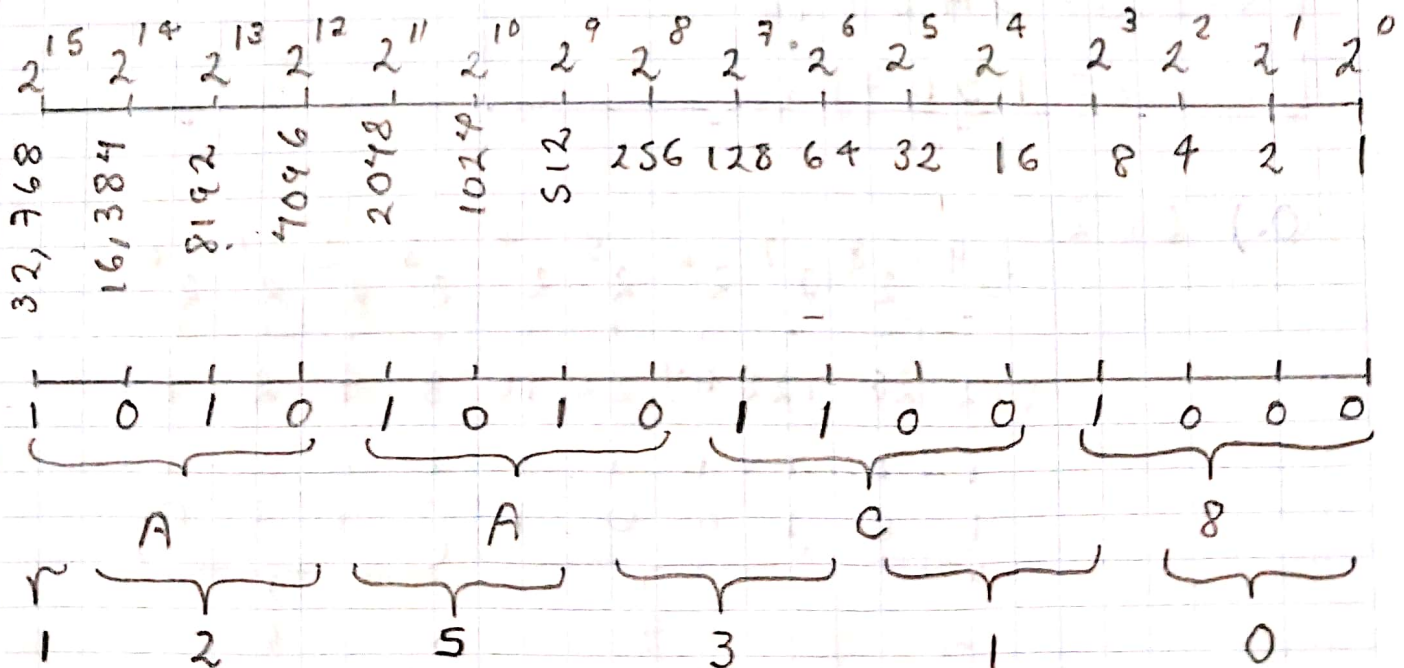 2^15 2^14 2^13 2^12 2^11 2^10 2^9 2^8 2^7 2^6 2^5 2^4 2^3 2^2 2^1 2^0
32,768 16,384 8192 4096 2048 1024 512 256 128 64 32 16 8 4 2 1
1 0 1 0 1 0 1 0 1 1 0 0 1 0 0 0
A A C 8
1 2 5 3 1 0